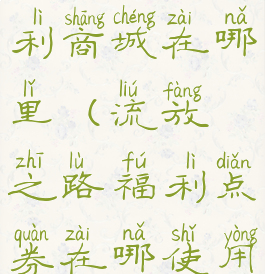 lì shāng chéng zài nǎ
利商城在哪
lǐ liú fàng
里（流放
zhī lù fú lì diǎn
之路福利点
quàn zài nǎ shǐ yòng
券在哪使用